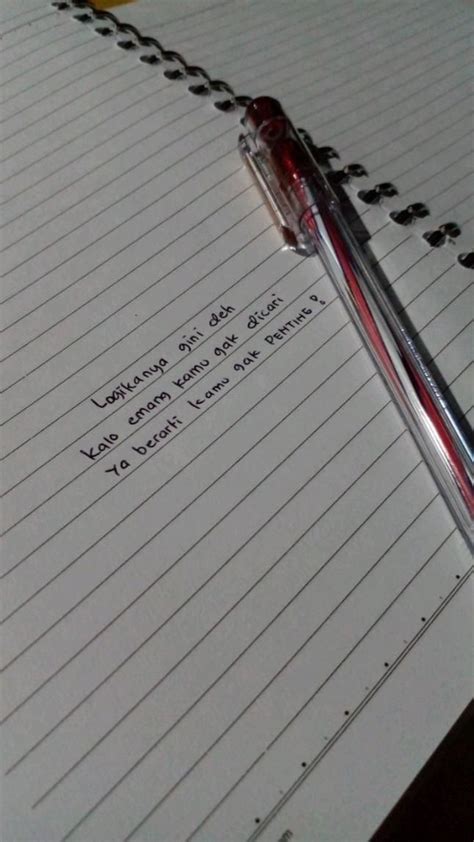 Logikanya gini deh
kalo emang kamu gak dicari
ya berarti kamu gak PENTING!